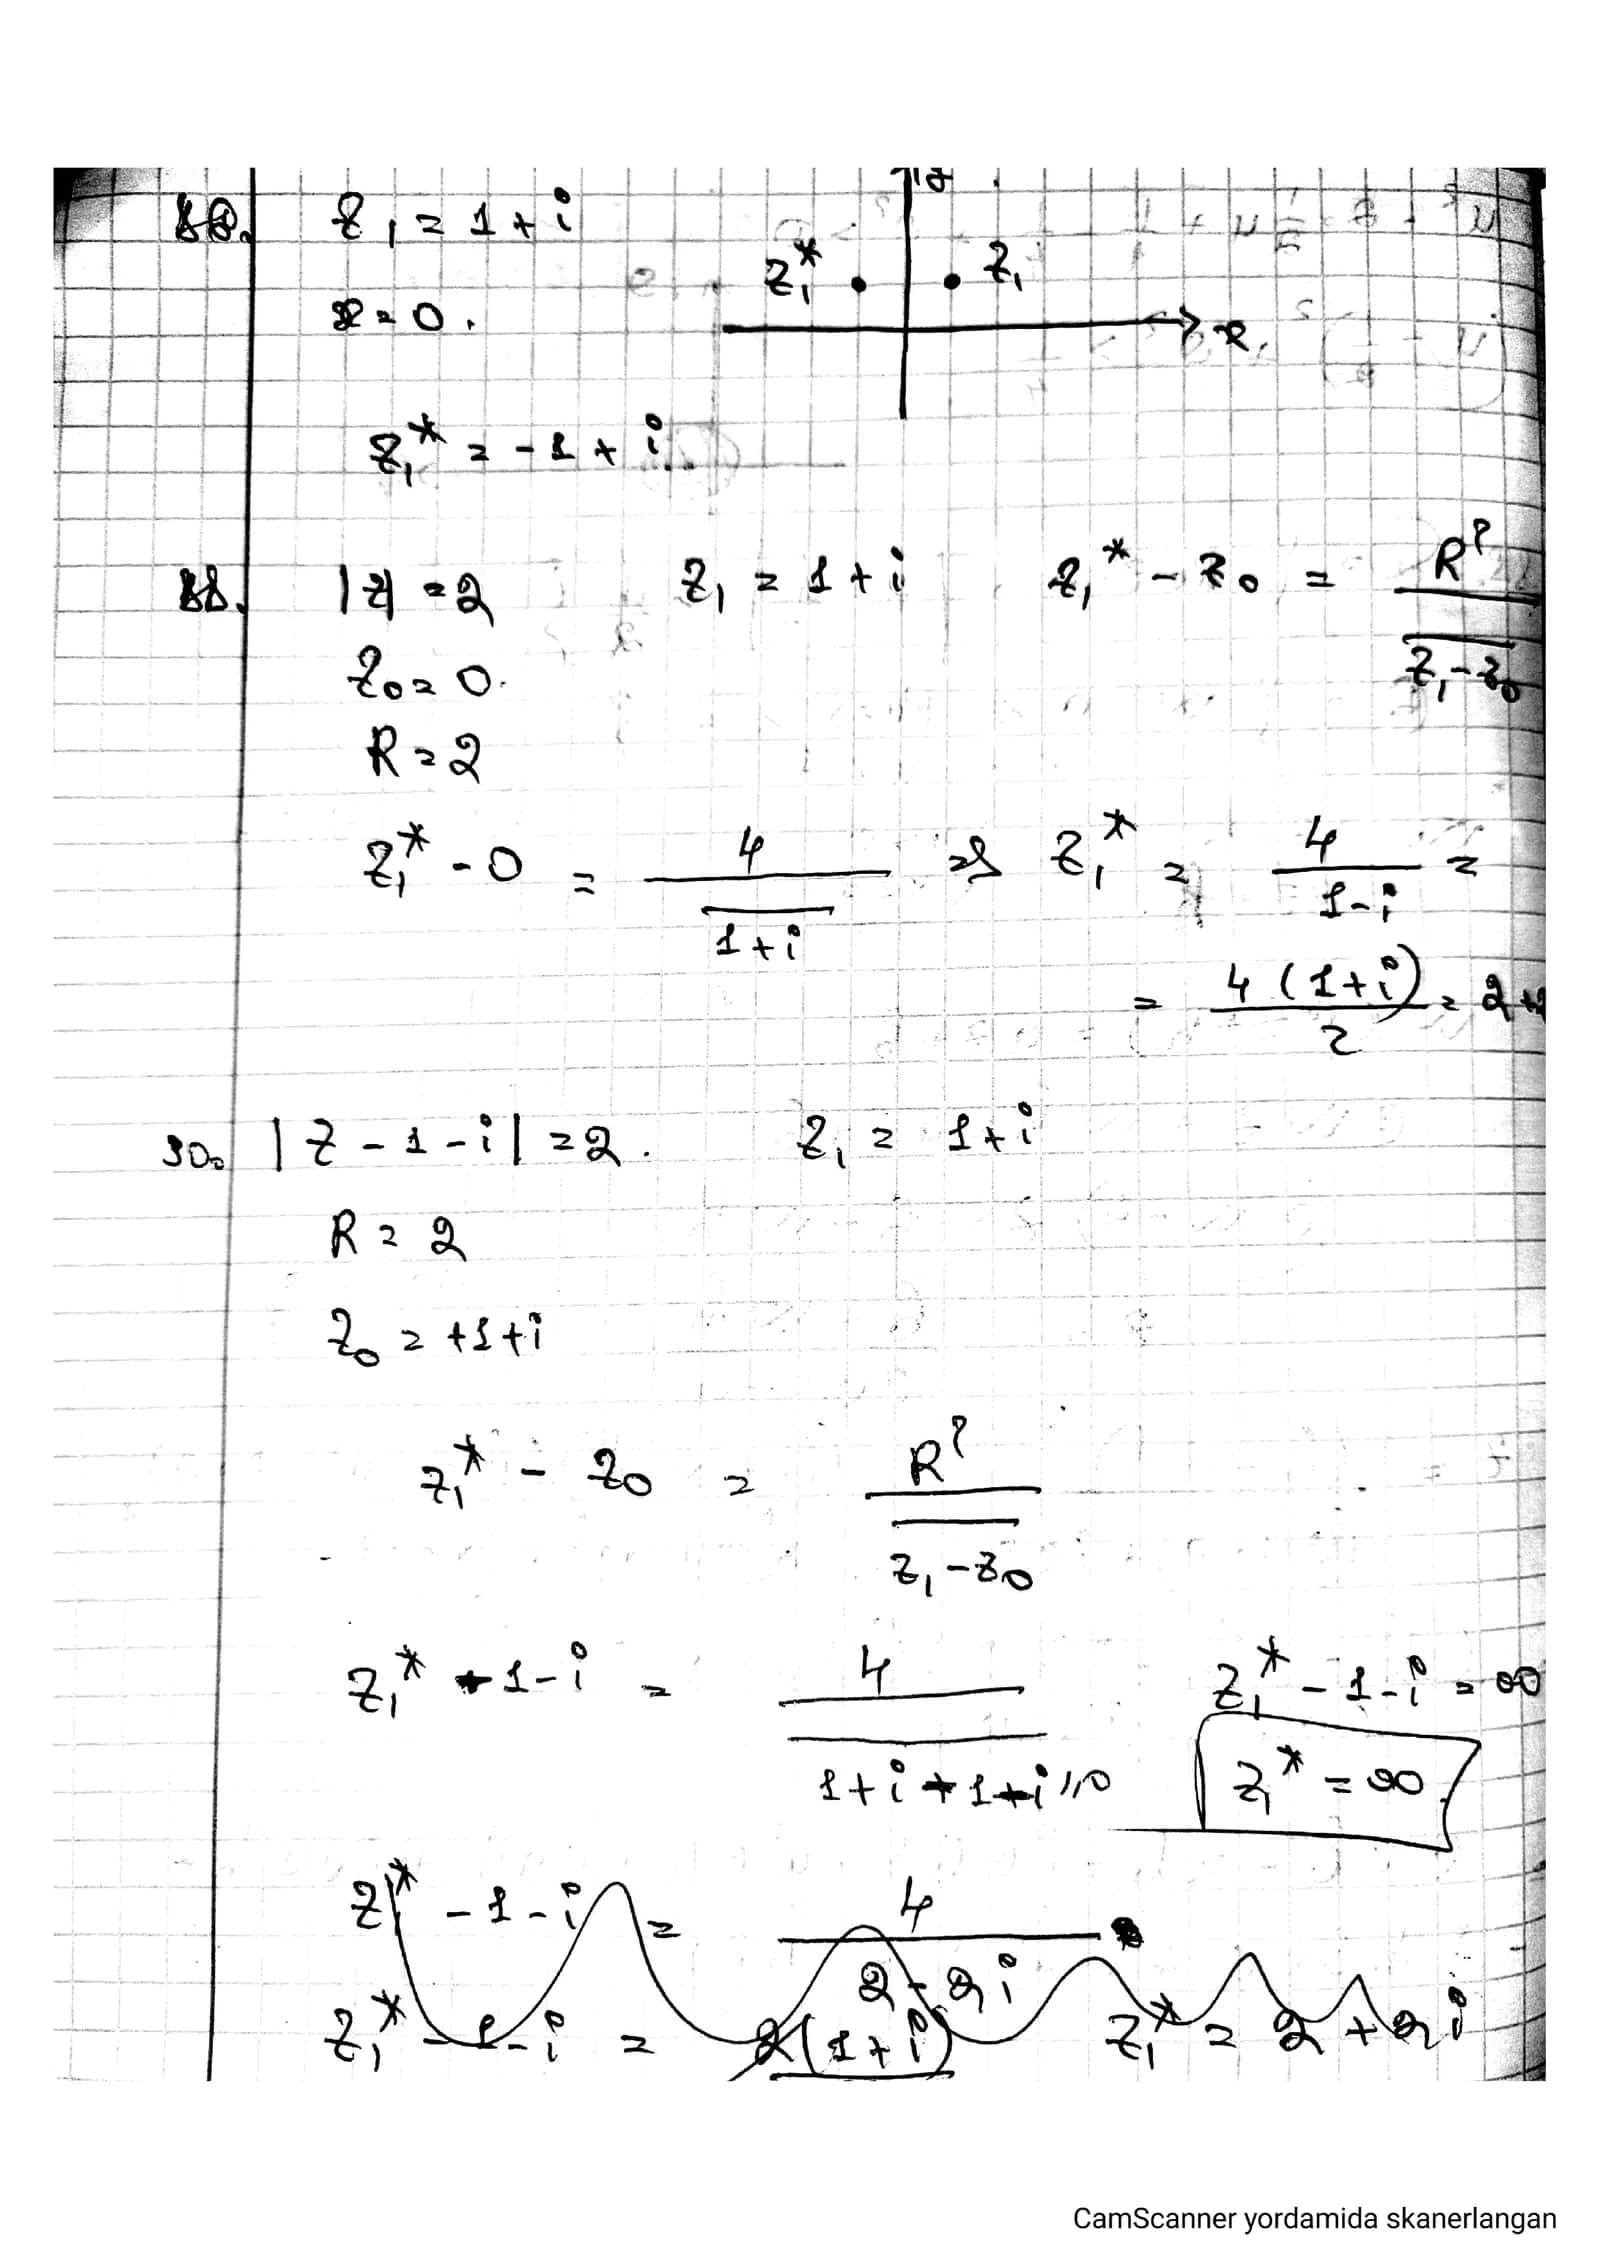 88. z₁ = 1 + i
x = 0.
z₁* z₁
x
z₁* = -1 + i
|z| = 2 z₁ = 1 + i z₁* - z₀ = R² / \overline{z₁ - z₀}
z₀ = 0.
R = 2
z₁* - 0 = 4 / \overline{1 + i} => z₁* = 4 / (1 - i) =
= 4 (1 + i) / 2 = 2 +
30. |z - 1 - i| = 2. z₁ = 1 + i
R = 2
z₀ = +1 + i
z₁* - z₀ = R² / \overline{z₁ - z₀}
z₁* - 1 - i = 4 / z₁* - 1 - i = ∞
z₁* = ∞
z₁* - 1 - i = 4 / (2 - 2i)
z₁* - 1 - i = 2(1 + i) z₁* = 2 + 2i
CamScanner yordamida skanerlangan